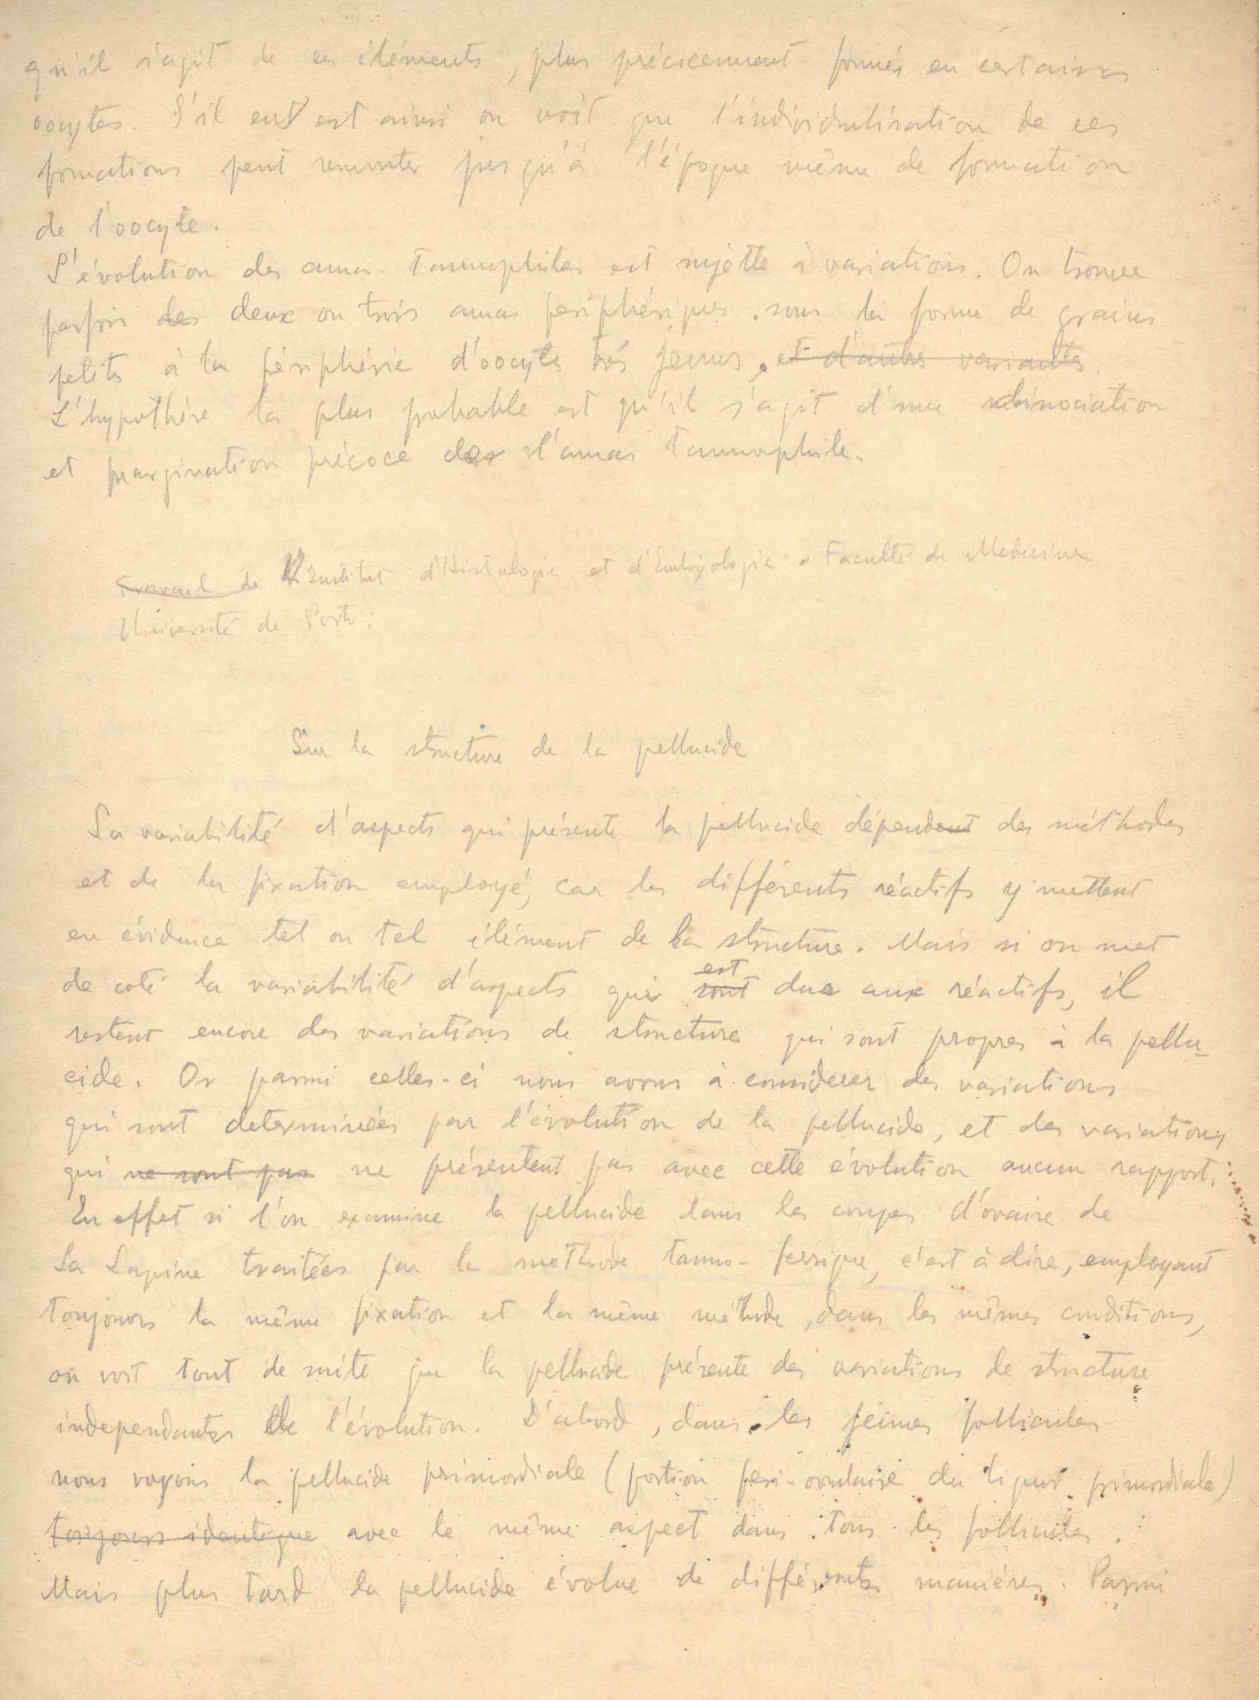 qu'il s'agit de ces éléments, plus précocement formés en certains
oocytes. S'il en est ainsi on voit que l'individualisation de ces
formations peut remonter jusqu'à l'époque même de formation
de l'oocyte.
L'évolution des amas tannophiles est sujette à variations. On trouve
parfois des deux ou trois amas periphériques sous la forme de grains
petits à la périphérie d'oocytes très jeunes, et d'autres variantes.
L'hypothèse la plus probable est qu'il s'agit d'une dissociation
et margination précoce des d'amas tannophile.
Travail de L'Institut d'Histologie et d'Embryologie. Faculté de Medecine
Université de Porto.
Sur la structure de la pellucide
La variabilité d'aspects qui présente la pellucide dépendent des méthodes
et de la fixation employé, car les différents réactifs y mettent
en évidence tel ou tel élément de la structure. Mais si on met
de coté la variabilité d'aspects qui sont est due aux réactifs, il
restent encore des variations de structure qui sont propres à la pellu-
cide. Or parmi celles-ci nous avons à considerer des variations
qui sont determinées par l'évolution de la pellucide, et des variations
qui ne sont pas ne présentent pas avec cette évolution aucun rapport.
En effet si l'on examine la pellucide dans les coupes d'ovaire de
la Lapine traitées par la méthode tanno-ferrique, c'est à dire, employant
toujours la même fixation et la même méthode, dans les mêmes conditions,
on voit tout de suite que la pellucide présente des variations de structure
independantes de l'évolution. D'abord, dans les jeunes follicules
nous voyons la pellucide primordiale (portion peri-ovulaire du primordiale)
toujours identique avec le même aspect dans tous les follicules.
Mais plus tard la pellucide évolue de différentes manières. Parmi